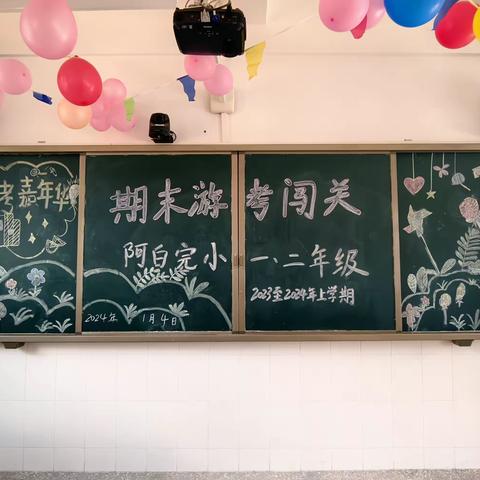 考嘉年华
期末游考闯关
阿白完小一、二年级
2023至2024年上学期
2024年 1月4日